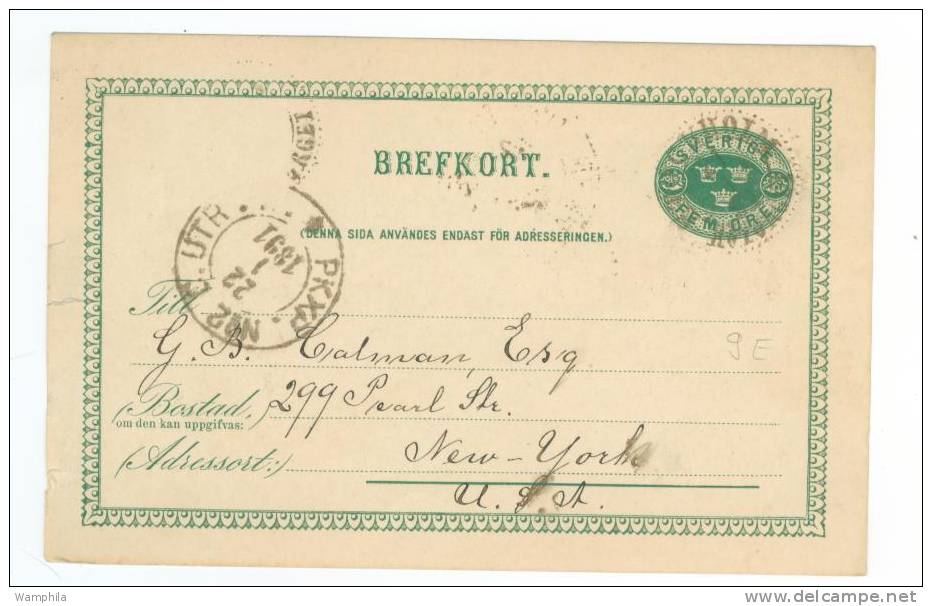 BREFKORT.
SVERIGE
FEM ÖRE
(DENNA SIDA ANVÄNDES ENDAST FÖR ADRESSERINGEN.)
PKXP. No2 Z. UTR
22
1
1891
Till
G. B. Calman, Esq
9 E
(Bostad,
299 Pearl Str.
om den kan uppgifvas:
New-York
(Adressort:)
U. S. A.
Wamphila
delcampe.net